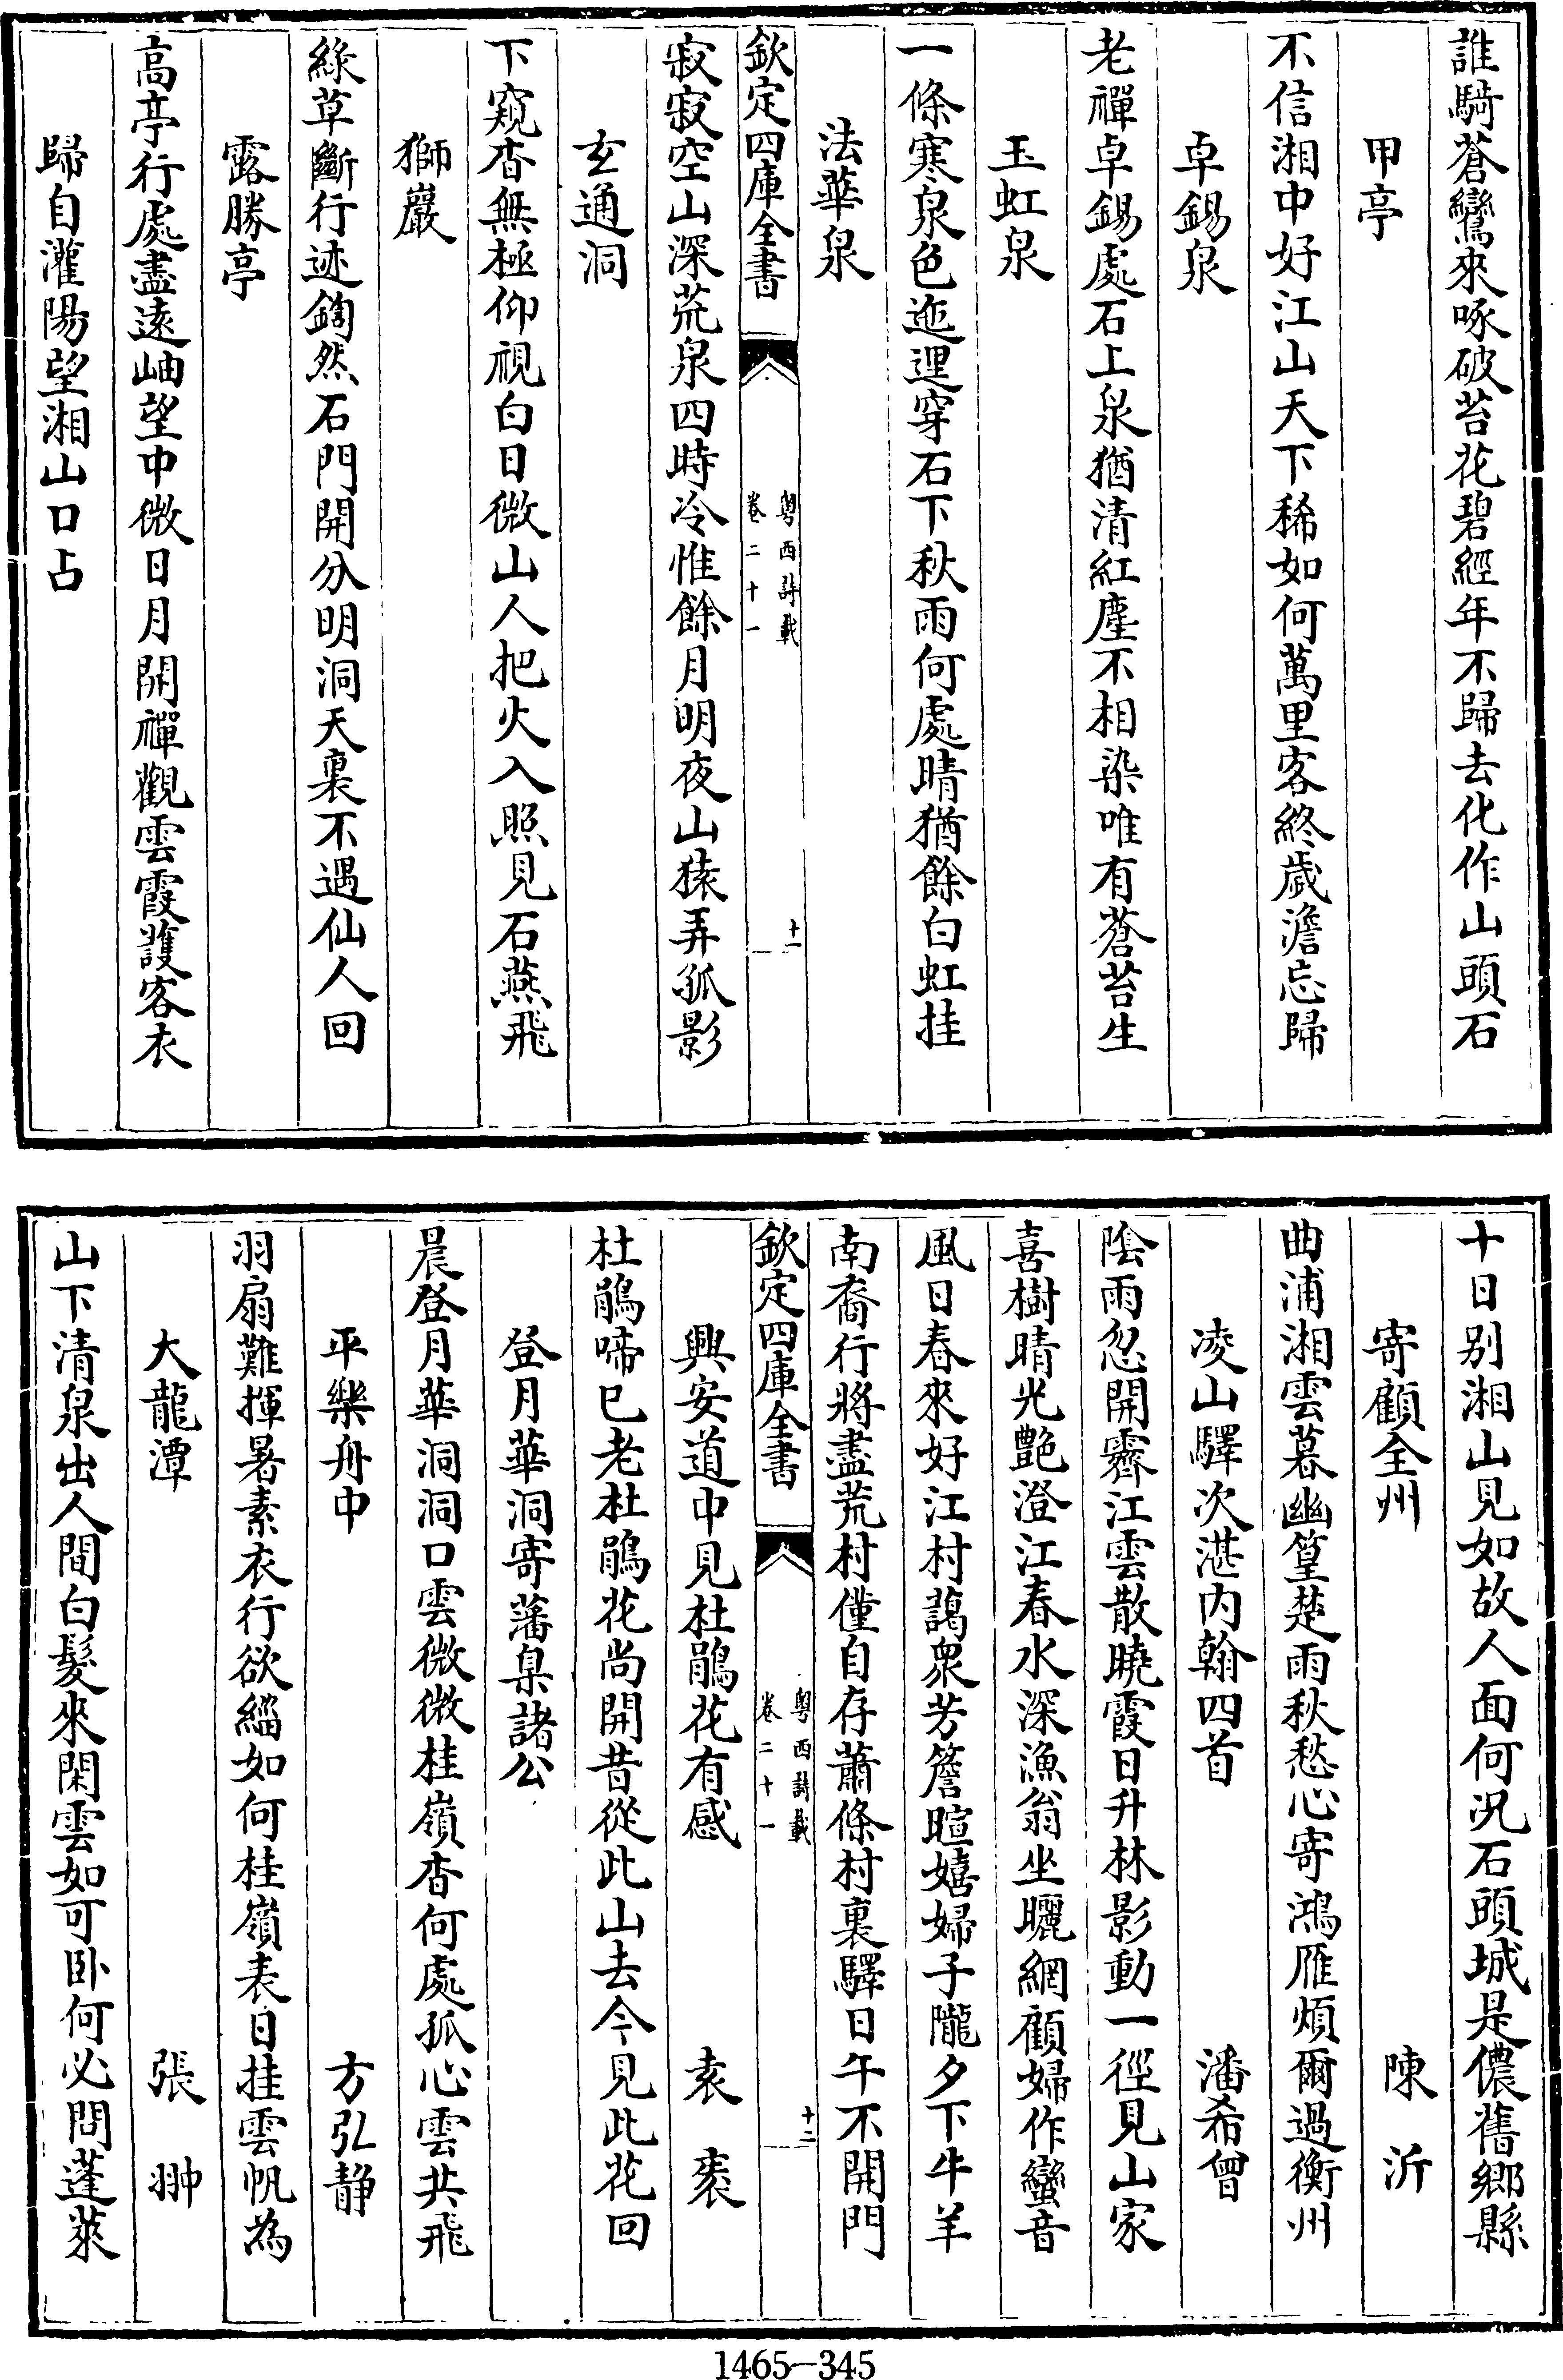 誰騎蒼鸞來啄破苔花碧經年不歸去化作山頭石
甲亭
不信湘中好江山天下稀如何萬里客終歲澹忘歸
卓錫泉
老禪卓錫處石上泉猶清紅塵不相染唯有蒼苔生
玉虹泉
一條寒泉色迤邐穿石下秋雨何處晴猶餘白虹挂
法華泉
欽定四庫全書
粤西詩載
卷二十一
十一
寂寂空山深荒泉四時冷惟餘月明夜山猿弄孤影
玄通洞
下窺杳無極仰視白日微山人把火入照見石燕飛
獅巖
綠草斷行迹鍧然石門開分明洞天裏不遇仙人回
露勝亭
高亭行處盡遠岫望中微日月開禪觀雲霞護客衣
歸自灌陽望湘山口占
十日别湘山見如故人面何况石頭城是儂舊鄉縣
寄顧全州 陳沂
曲浦湘雲暮幽篁楚雨秋愁心寄鴻雁煩爾過衡州
凌山驛次湛内翰四首 潘希曾
陰雨忽開霽江雲散曉霞日升林影動一徑見山家
喜樹晴光艷澄江春水深漁翁坐曬網顧婦作蠻音
風日春來好江村藹衆芳簷暄嬉婦子隴夕下牛羊
南裔行將盡荒村僅自存蕭條村裏驛日午不開門
欽定四庫全書
粤西詩載
卷二十一
十二
興安道中見杜鵑花有感 袁袠
杜鵑啼已老杜鵑花尚開昔從此山去今見此花回
登月華洞寄藩臬諸公
晨登月華洞洞口雲微微桂嶺杳何處孤心雲共飛
平樂舟中 方弘静
羽扇難揮暑素衣行欲緇如何桂嶺表日挂雲帆為
大龍潭 張翀
山下清泉出人間白髮來閑雲如可卧何必問蓬萊
1465-345